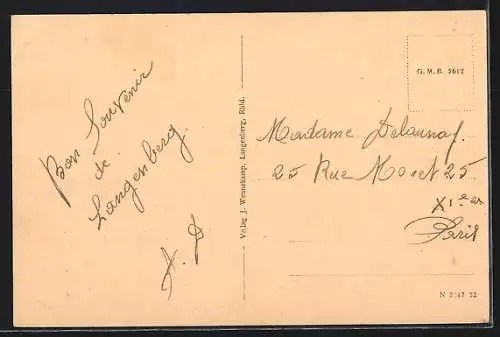 Bon Souvenir
de
Langenberg.
A. D
Verlag J. Wennekamp, Langenberg, Rhld.
G. M. B. 2612
Madame Delaunay.
25 Rue Moret 25
XIe
Paris